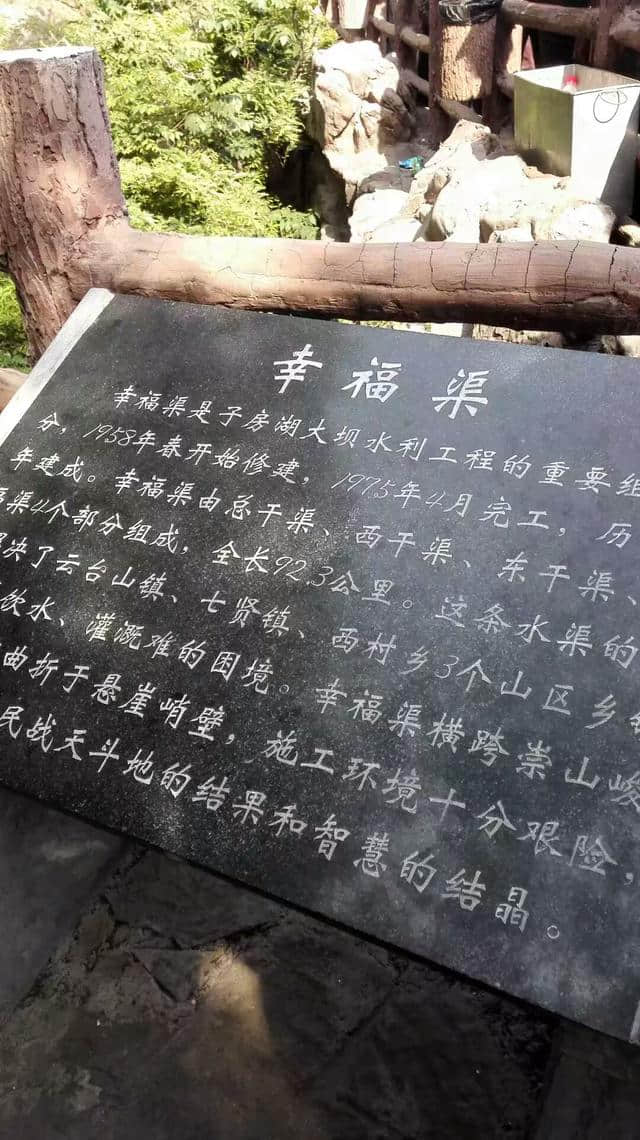 幸福渠
幸福渠是子房湖大坝水利工程的重要组
分，1958年春开始修建，1975年4月完工，历
年建成。幸福渠由总干渠、西干渠、东干渠、
渠4个部分组成，全长92.3公里。这条水渠的
决了云台山镇、七贤镇、西村乡3个山区乡
饮水、灌溉难的困境。幸福渠横跨崇山峻
曲折于悬崖峭壁，施工环境十分艰险，
民战天斗地的结果和智慧的结晶。